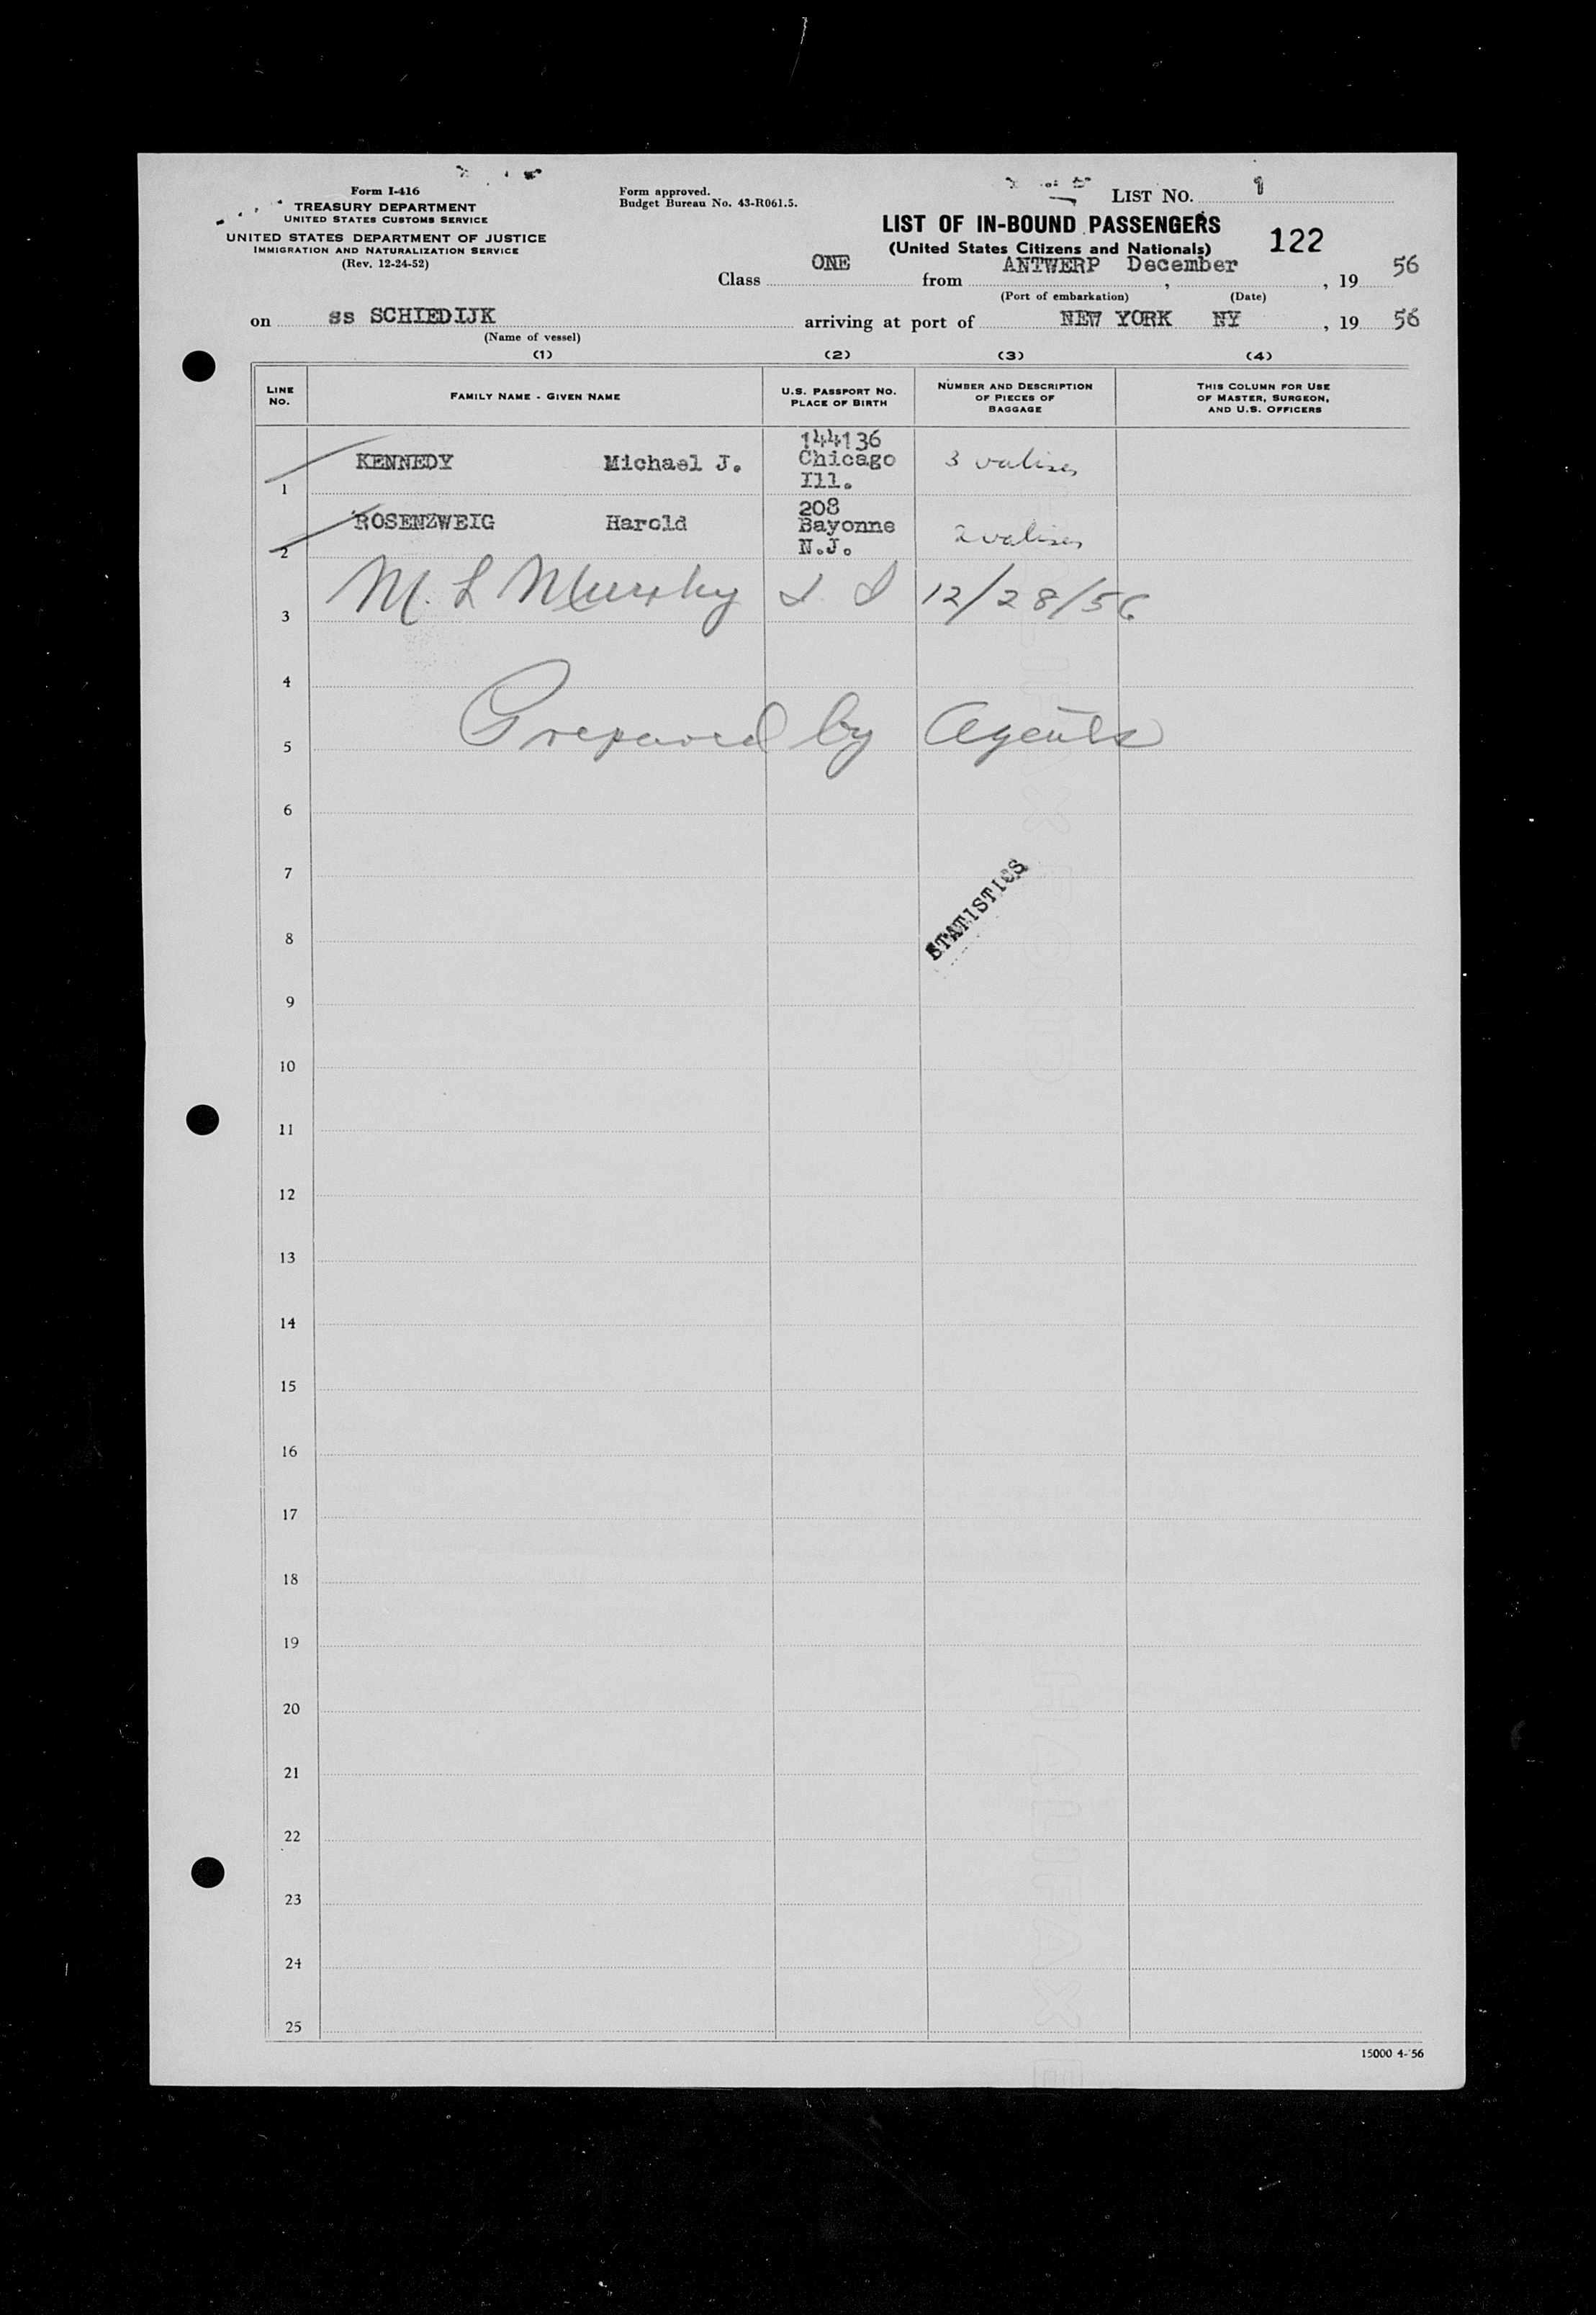 Form I-416
TREASURY DEPARTMENT
UNITED STATES CUSTOMS SERVICE
UNITED STATES DEPARTMENT OF JUSTICE
IMMIGRATION AND NATURALIZATION SERVICE
(Rev. 12-24-52)
Form approved.
Budget Bureau No. 43-R061.5.
LIST NO. 1
LIST OF IN-BOUND PASSENGERS
(United States Citizens and Nationals)
122
Class ONE from ANTWERP, December, 19 56
(Port of embarkation) (Date)
on ss SCHIEDIJK arriving at port of NEW YORK NY, 19 56
(Name of vessel)
(1) (2) (3) (4)
LINE NO. FAMILY NAME - GIVEN NAME U.S. PASSPORT NO. PLACE OF BIRTH NUMBER AND DESCRIPTION OF PIECES OF BAGGAGE THIS COLUMN FOR USE OF MASTER, SURGEON, AND U.S. OFFICERS
1 KENNEDY Michael J. 144136 Chicago Ill. 3 valises
2 ROSENZWEIG Harold 208 Bayonne N.J. 2 valises
3 M. L Murphy 12/28/56
4
5 Prepared by Agents
6
7
STATISTICS
8
9
10
11
12
13
14
15
16
17
18
19
20
21
22
23
24
25
15000 4-'56